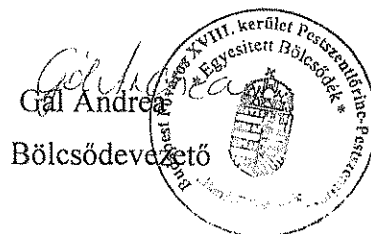 Gál Andrea
Gál Andrea
Bölcsődevezető
Budapest Főváros XVIII. kerület Pestszentlőrinc-Pestszentimre
* Egyesített Bölcsődék *